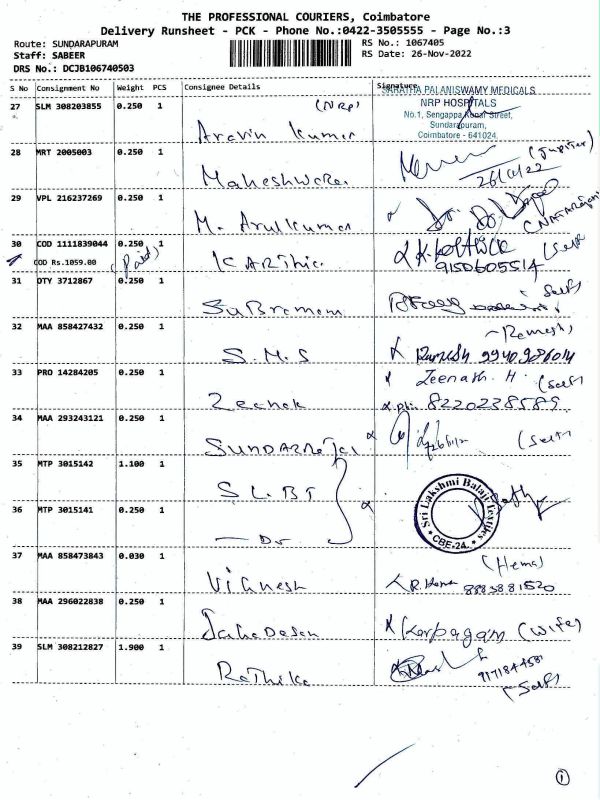 THE PROFESSIONAL COURIERS, Coimbatore
Delivery Runsheet - PCK - Phone No.:0422-3505555 - Page No.:3
Route: SUNDARAPURAM
RS No.: 1067405
Staff: SABEER
RS Date: 26-Nov-2022
DRS No.: DCJB106740503
S No Consignment No Weight PCS Consignee Details Signature
SARATHA PALANISWAMY MEDICALS
NRP HOSPITALS
No.1, Sengappa Konar Street,
Sundarapuram,
Coimbatore - 641024.
27 SLM 308203855 0.250 1 (NRP)
Aravin Kumar
28 MRT 2005003 0.250 1
Maheshwaran (Jupiter)
26/11/22
29 VPL 216237269 0.250 1
M. Arulkumar
(NATARAJAN)
30 COD 1111839044 0.250 1 K.KARTHICK (Self)
COD Rs.1059.00 (Paid) KARThic 9150605514
31 OTY 3712867 0.250 1 (Self)
SuBramani
32 MAA 858427432 0.250 1 (Ramesh)
S.M.S Ramesh 9940986014
33 PRO 14284205 0.250 1 Zeenath. H (Self)
Zeenak ph: 8220238589
34 MAA 293243121 0.250 1 (Self)
SUNDARRaJ
35 MTP 3015142 1.100 1
S.L.BT
Sri Lakshmi Balaji Textiles
CBE-24.
36 MTP 3015141 0.250 1
— Do
37 MAA 858473843 0.030 1 (Hema)
Vignesh R.Hema 8883881520
38 MAA 296022838 0.250 1
Karpagam (Wife)
39 SLM 308212827 1.900 1
RaThika 9171844581
(Self)
1